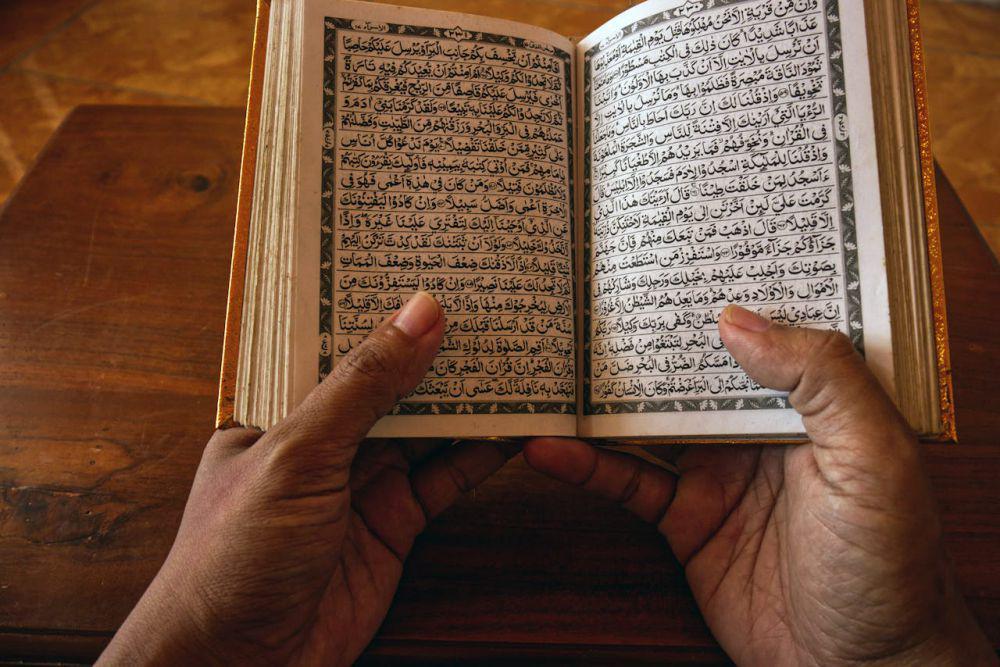 وَاِنْ مِّنْ قَرْيَةٍ اِلَّا نَحْنُ مُهْلِكُوْهَا قَبْلَ يَوْمِ الْقِيٰمَةِ
عَذَابًا شَدِيْدًا كَانَ ذٰلِكَ فِى الْكِتٰبِ مَسْطُوْرًا
اَنْ نُّرْسِلَ بِالْاٰيٰتِ اِلَّاۤ اَنْ كَذَّبَ بِهَا الْاَوَّلُوْنَ وَاٰتَيْنَا
ثَمُوْدَ النَّاقَةَ مُبْصِرَةً فَظَلَمُوْا بِهَا وَمَا نُرْسِلُ بِالْاٰيٰتِ اِلَّا
تَخْوِيْفًا وَاِذْ قُلْنَا لَكَ اِنَّ رَبَّكَ اَحَاطَ بِالنَّاسِ وَمَا جَعَلْنَا
الرُّءْيَا الَّتِىْۤ اَرَيْنٰكَ اِلَّا فِتْنَةً لِّلنَّاسِ وَالشَّجَرَةَ الْمَلْعُوْنَةَ
فِى الْقُرْاٰنِ وَنُخَوِّفُهُمْ فَمَا يَزِيْدُهُمْ اِلَّا طُغْيَانًا كَبِيْرًا
وَاِذْ قُلْنَا لِلْمَلٰٓئِكَةِ اسْجُدُوْا لِاٰدَمَ فَسَجَدُوْۤا اِلَّاۤ اِبْلِيْسَ قَالَ
ءَاَسْجُدُ لِمَنْ خَلَقْتَ طِيْنًا قَالَ اَرَءَيْتَكَ هٰذَا الَّذِىْ
كَرَّمْتَ عَلَىَّ لَئِنْ اَخَّرْتَنِ اِلٰى يَوْمِ الْقِيٰمَةِ لَاَحْتَنِكَنَّ ذُرِّيَّتَهٗۤ
اِلَّا قَلِيْلًا قَالَ اذْهَبْ فَمَنْ تَبِعَكَ مِنْهُمْ فَاِنَّ جَهَنَّمَ
جَزَآؤُكُمْ جَزَآءً مَّوْفُوْرًا وَاسْتَفْزِزْ مَنِ اسْتَطَعْتَ مِنْهُمْ
بِصَوْتِكَ وَاَجْلِبْ عَلَيْهِمْ بِخَيْلِكَ وَرَجِلِكَ وَشَارِكْهُمْ فِى
الْاَمْوَالِ وَالْاَوْلَادِ وَعِدْهُمْ وَمَا يَعِدُهُمُ الشَّيْطٰنُ اِلَّا غُرُوْرًا
اِنَّ عِبَادِىْ لَيْسَ سُلْطٰنٌ وَكَفٰى بِرَبِّكَ وَكِيْلًا
الْبَحْرِ لِتَبْتَغُوْا مِنْ فَضْلِهٖ اِنَّهٗ
مَسَّكُمُ الضُّرُّ فِى الْبَحْرِ ضَلَّ مَنْ
نَجّٰىكُمْ اِلَى الْبَرِّ اَعْرَضْتُمْ وَكَانَ الْاِنْسَانُ كَفُوْرًا
اَفَاَمِنْتُمْ اَنْ يَّخْسِفَ بِكُمْ جَانِبَ الْبَرِّ اَوْ يُرْسِلَ عَلَيْكُمْ حَاصِبًا
ثُمَّ لَا تَجِدُوْا لَكُمْ وَكِيْلًا اَمْ اَمِنْتُمْ اَنْ يُّعِيْدَكُمْ فِيْهِ تَارَةً
اُخْرٰى فَيُرْسِلَ عَلَيْكُمْ قَاصِفًا مِّنَ الرِّيْحِ فَيُغْرِقَكُمْ بِمَا كَفَرْتُمْ
ثُمَّ لَا تَجِدُوْا لَكُمْ عَلَيْنَا بِهٖ تَبِيْعًا وَلَقَدْ كَرَّمْنَا بَنِىْۤ اٰدَمَ وَ
حَمَلْنٰهُمْ فِى الْبَرِّ وَالْبَحْرِ وَرَزَقْنٰهُمْ مِّنَ الطَّيِّبٰتِ وَفَضَّلْنٰهُمْ
عَلٰى كَثِيْرٍ مِّمَّنْ خَلَقْنَا تَفْضِيْلًا يَوْمَ نَدْعُوْا كُلَّ اُنَاسٍۭ
بِاِمَامِهِمْ فَمَنْ اُوْتِىَ كِتٰبَهٗ بِيَمِيْنِهٖ فَاُولٰٓئِكَ يَقْرَءُوْنَ كِتٰبَهُمْ
وَلَا يُظْلَمُوْنَ فَتِيْلًا وَمَنْ كَانَ فِىْ هٰذِهٖۤ اَعْمٰى فَهُوَ فِى
الْاٰخِرَةِ اَعْمٰى وَاَضَلُّ سَبِيْلًا وَاِنْ كَادُوْا لَيَفْتِنُوْنَكَ
عَنِ الَّذِىْۤ اَوْحَيْنَاۤ اِلَيْكَ لِتَفْتَرِىَ عَلَيْنَا غَيْرَهٗ وَاِذًا
لَّاتَّخَذُوْكَ خَلِيْلًا وَلَوْلَاۤ اَنْ ثَبَّتْنٰكَ لَقَدْ كِدْتَّ تَرْكَنُ اِلَيْهِمْ
شَيْئًا قَلِيْلًا اِذًا لَّاَذَقْنٰكَ ضِعْفَ الْحَيٰوةِ وَضِعْفَ الْمَمَاتِ
ثُمَّ لَا تَجِدُ لَكَ عَلَيْنَا نَصِيْرًا وَاِنْ كَادُوْا لَيَسْتَفِزُّوْنَكَ مِنَ
الْاَرْضِ لِيُخْرِجُوْكَ مِنْهَا وَاِذًا لَّا خِلٰفَكَ اِلَّا قَلِيْلًا
سُنَّةَ مَنْ قَدْ اَرْسَلْنَا قَبْلَكَ مِنْ لِسُنَّتِنَا
تَحْوِيْلًا اَقِمِ الصَّلٰوةَ لِدُلُوْكِ الشَّمْسِ
وَقُرْاٰنَ الْفَجْرِ اِنَّ قُرْاٰنَ الْفَجْرِ كَانَ
فَتَهَجَّدْ بِهٖ نَافِلَةً لَّكَ عَسٰۤى اَنْ يَّبْعَثَكَ